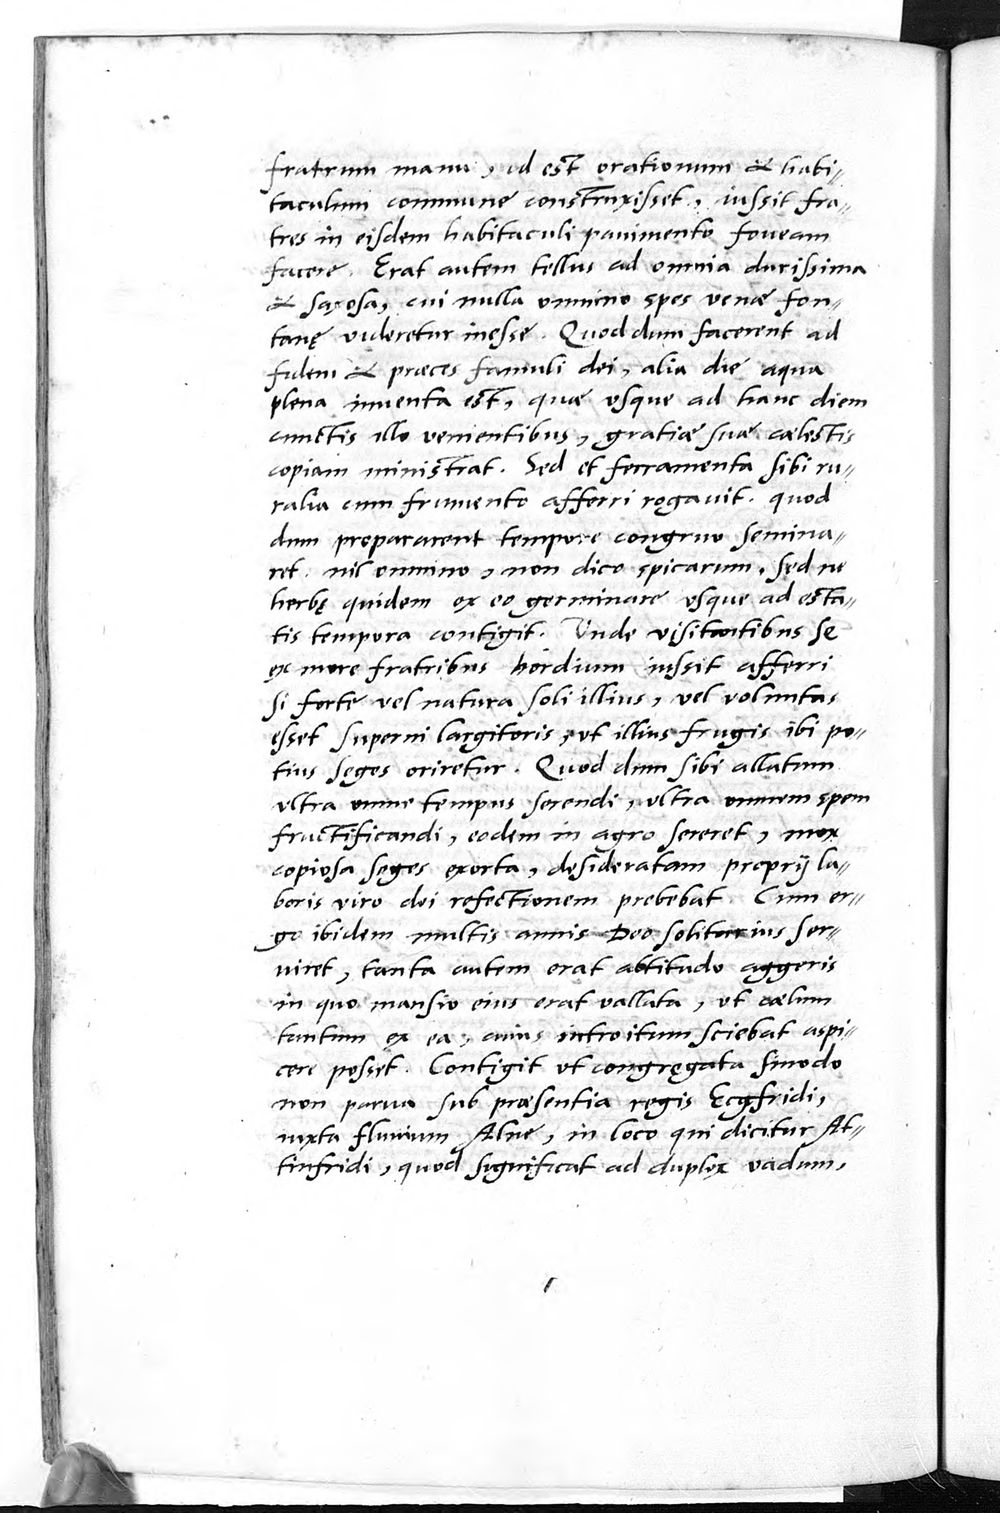 fratrum manu, id est orationum & habi⸗
taculum commune construxisset, iussit fra⸗
tres in eisdem habitaculi pauimento foueam
facere. Erat autem tellus ad omnia durissima
& saxosa, cui nulla omnino spes venæ fon⸗
tanę videretur inesse. Quod dum facerent ad
fidem & præces famuli dei, alia die aqua
plena inuenta est, quæ vsque ad hanc diem
cunctis illo venientibus, gratiæ suæ cælestis
copiam ministrat. Sed et ferramenta sibi ru⸗
ralia cum frumento afferri rogauit. quod
dum prepararent tempore congruo semina⸗
ret. nil omnino, non dico spicarum, sed ne
herbę quidem ex eo germinare vsque ad esta⸗
tis tempora contigit. Vnde visitantibus se
ex more fratribus hordium iussit afferri
si forte vel natura soli illius, vel voluntas
esset superni largitoris, vt illius frugis ibi po⸗
tius seges oriretur. Quod dum sibi allatum
vltra omne tempus serendi, vltra omnem spem
fructificandi, eodem in agro sereret, mox
copiosa seges exorta, desideratam proprij la⸗
boris viro dei refectionem prebebat. Cum er⸗
go ibidem multis annis Deo solitarius ser⸗
uiret, tanta autem erat abtitudo aggeris
in quo mansio eius erat vallata, vt cælum
tantum ex ea, cuius introitum sciebat aspi⸗
cere posset. Contigit vt congregata sinodo
non parua sub præsentia regis Ecgfridi,
iuxta fluuium Alne, in loco qui dicitur At⸗
tinfridi, quod significat ad duplex vadum,